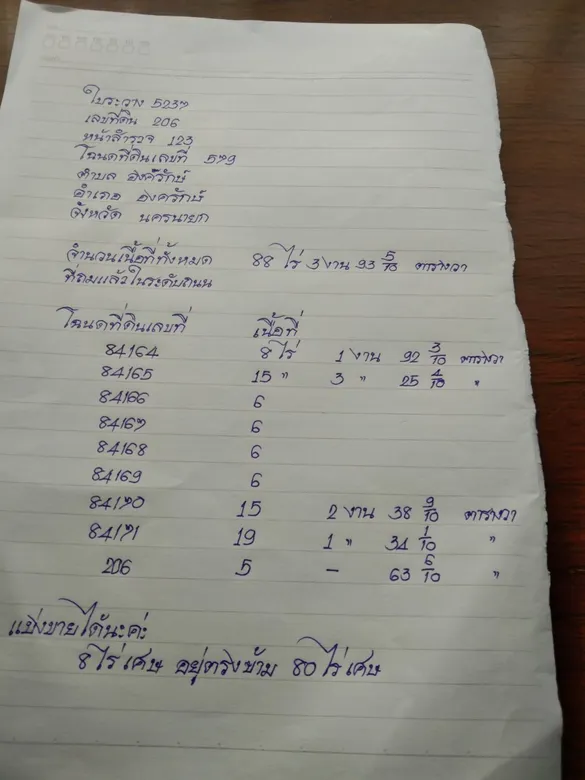 ใบระวาง 5237
เลขที่ดิน 206
หน้าสำรวจ 123
โฉนดที่ดินเลขที่ 579
ตำบล องครักษ์
อำเภอ องครักษ์
จังหวัด นครนายก
จำนวนเนื้อที่ทั้งหมด 88 ไร่ 3 งาน 93 5/10 ตารางวา
ที่ถมแล้วในระดับถนน
โฉนดที่ดินเลขที่ เนื้อที่
84164 8 ไร่ 1 งาน 92 3/10 ตารางวา
84165 15 " 3 " 25 4/10 "
84166 6
84167 6
84168 6
84169 6
84170 15 2 งาน 38 9/10 ตารางวา
84171 19 1 " 34 1/10 "
206 5 - 63 6/10 "
แบ่งขายได้นะค่ะ
8 ไร่เศษ อยู่ตรงข้าม 80 ไร่เศษ